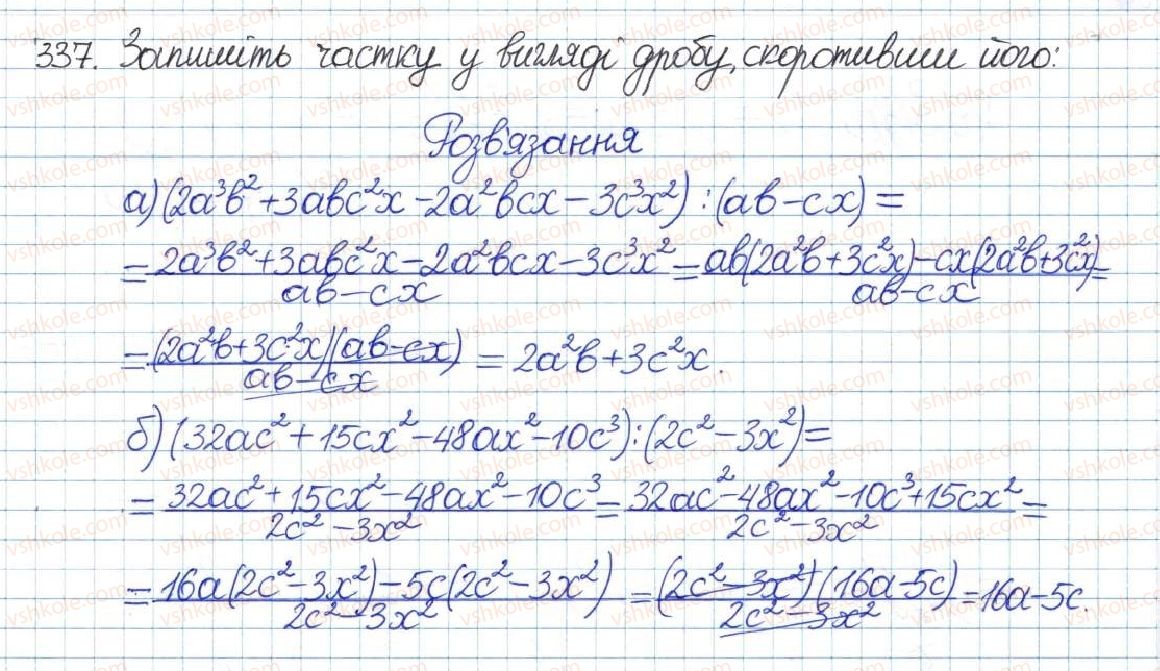 337. Запишіть частку у вигляді дробу, скоротивши його:
Розв'язання
а) (2a³b² + 3abc²x - 2a²bcx - 3c³x²) : (ab - cx) =
= (2a³b² + 3abc²x - 2a²bcx - 3c³x²)/(ab - cx) = (ab(2a²b + 3c²x) - cx(2a²b + 3c²x))/(ab - cx) =
= ((2a²b + 3c²x)(ab - cx))/(ab - cx) = 2a²b + 3c²x.
б) (32ac² + 15cx² - 48ax² - 10c³) : (2c² - 3x²) =
= (32ac² + 15cx² - 48ax² - 10c³)/(2c² - 3x²) = (32ac² - 48ax² - 10c³ + 15cx²)/(2c² - 3x²) =
= (16a(2c² - 3x²) - 5c(2c² - 3x²))/(2c² - 3x²) = ((2c² - 3x²)(16a - 5c))/(2c² - 3x²) = 16a - 5c.